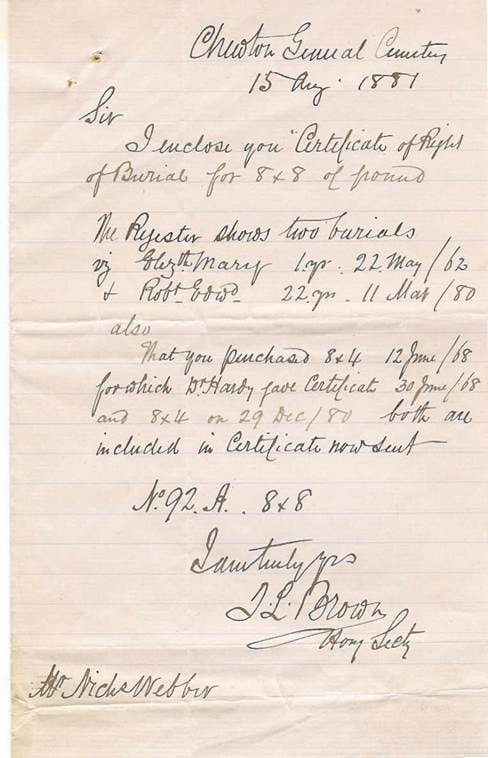 Chewton General Cemetery
15 Aug. 1881
Sir
I enclose you "Certificate of Right
of Burial for 8x8 of ground
The Register shows two burials
viz Elizth Mary 1 yr. 22 May/62
& Robt Edwd 22 yrs - 11 Mar/80
also
That you purchased 8x4 12 June/68
for which Dr Hardy gave Certificate 30 June/68
and 8x4 on 29 Dec/80 both are
included in Certificate now sent
No 92. A. 8x8
I am truly yrs
J. L. Brown
Hony Secty
Mr Nichs Webber